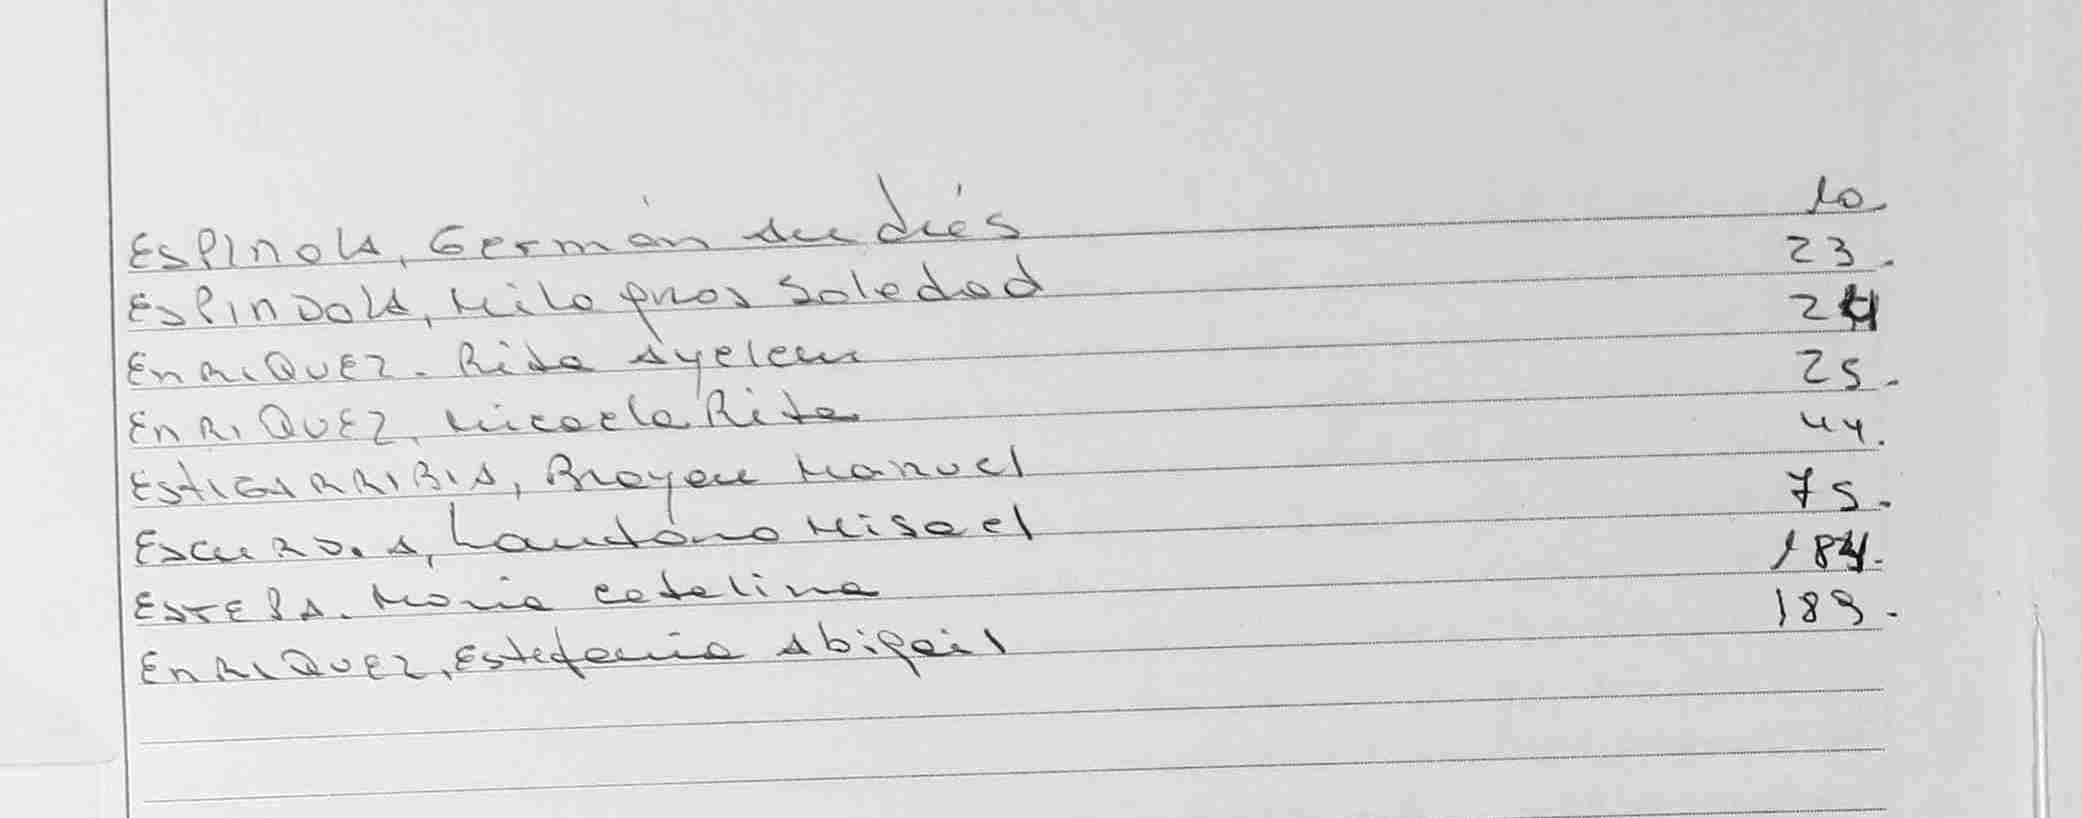 ESPINOLA, Germán Andrés 10
ESPINDOLA, Milagros Soledad 23.
ENRIQUEZ. Rita Ayelen 24
ENRIQUEZ, Micaela Rita 25.
ESTIGARRIBIA, Brayan Manuel 44.
Lautaro Misael 75.
ESTEPA. María Catalina 184.
ENRIQUEZ, Estefania Abigail 189.